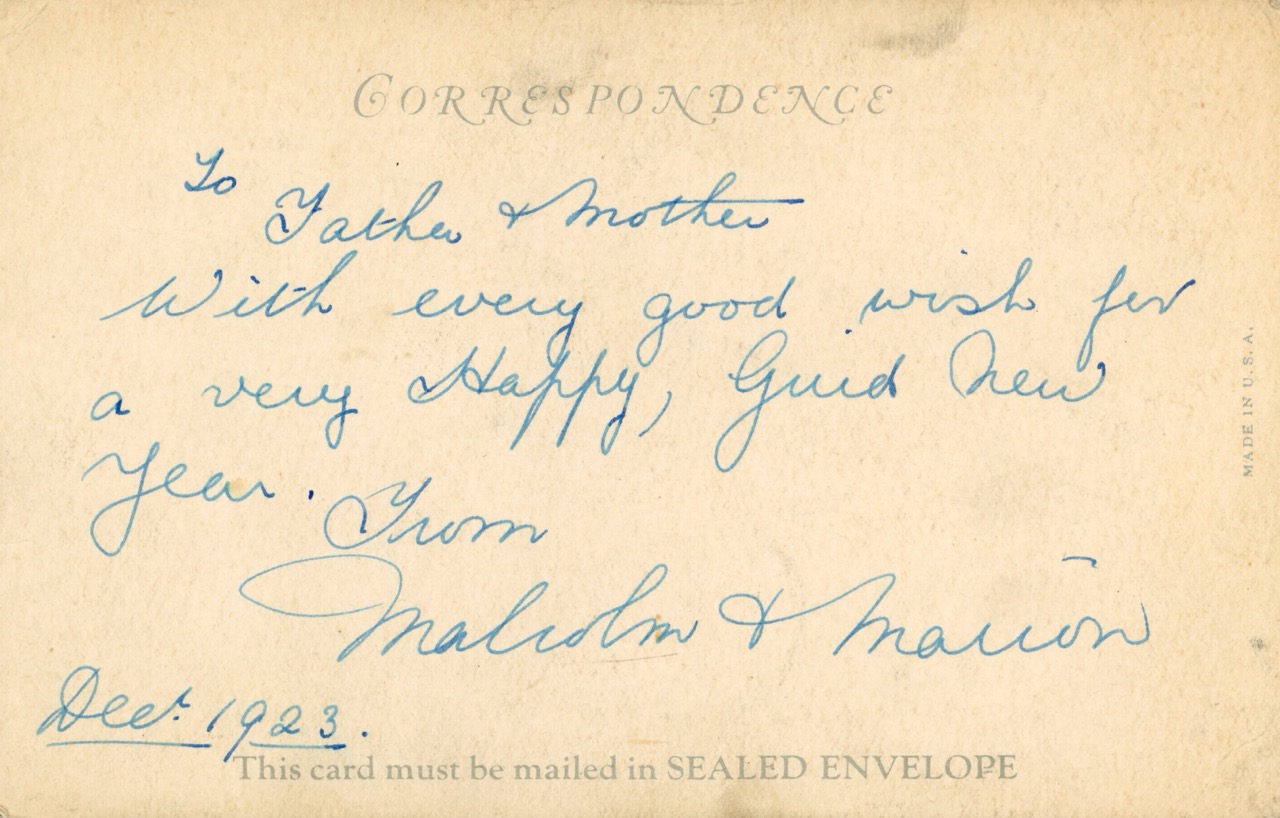 CORRESPONDENCE
To
Father & Mother
With every good wish for
a very Happy, Guid New
Year.
From
Malcolm & Marion
Decr. 1923.
This card must be mailed in SEALED ENVELOPE
MADE IN U.S.A.